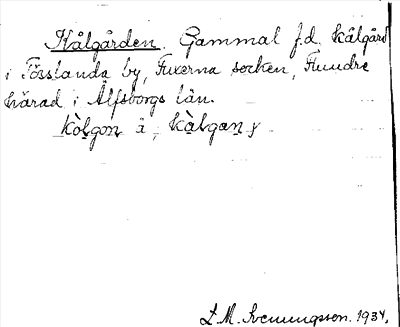 Kålgården. Gammal f.d. kålgård
i Tösslanda by, Fuxerna socken, Flundre
härad i Älfsborgs län.
kòlgon ä, kàlgan y
L. M. Svenungsson. 1934.